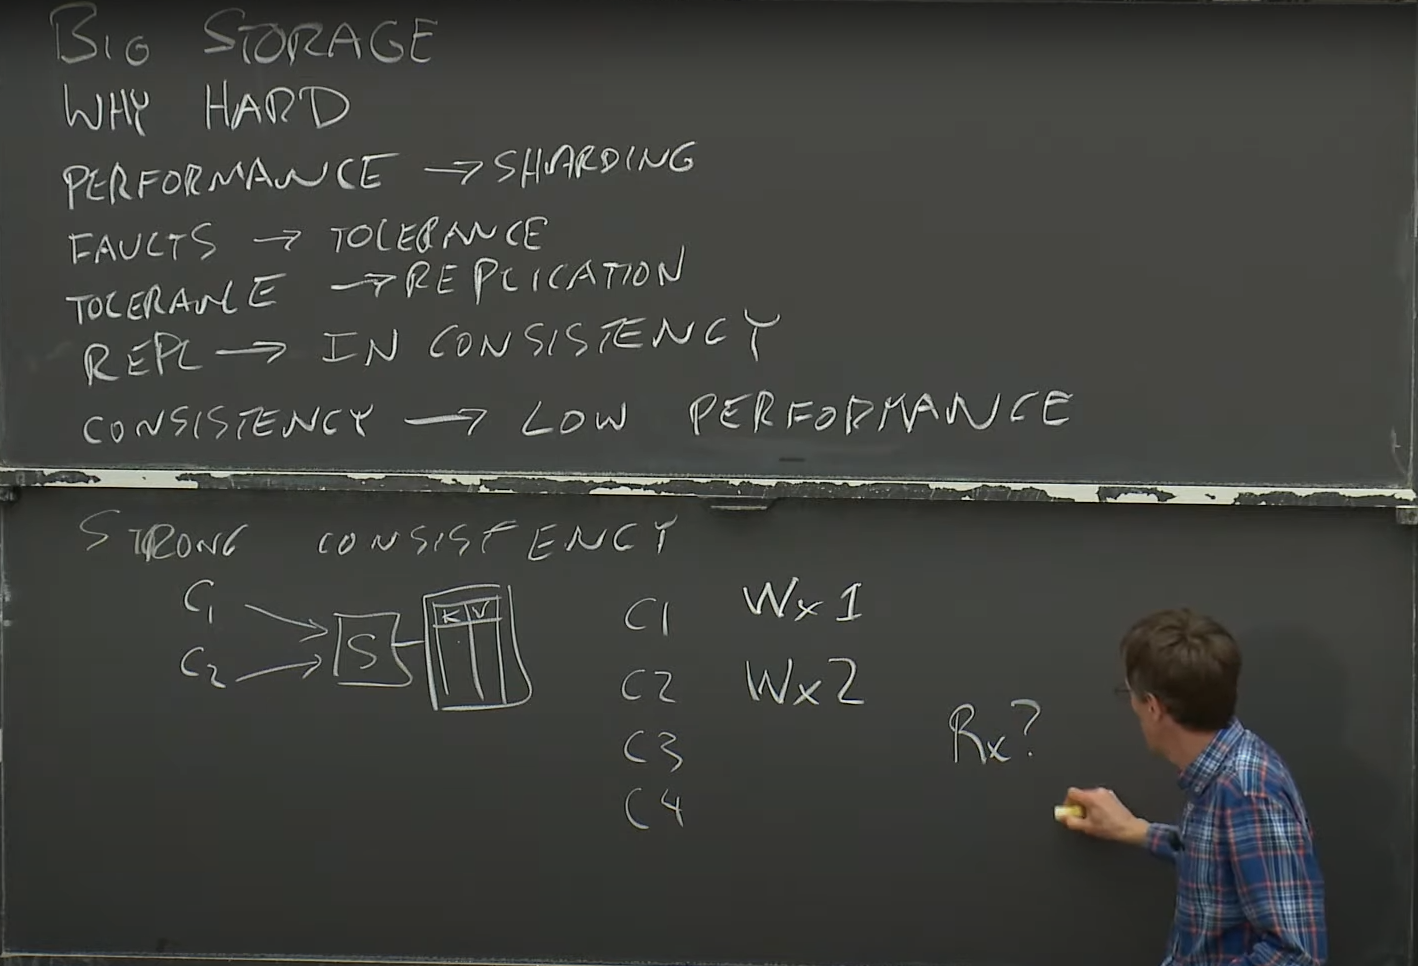 BIG STORAGE
WHY HARD
PERFORMANCE → SHARDING
FAULTS → TOLERANCE
TOLERANCE → REPLICATION
REPL → IN CONSISTENCY
CONSISTENCY → LOW PERFORMANCE
STRONG CONSISTENCY
C1
C2
S
K V
C1 Wx1
C2 Wx2
C3 Rx?
C4